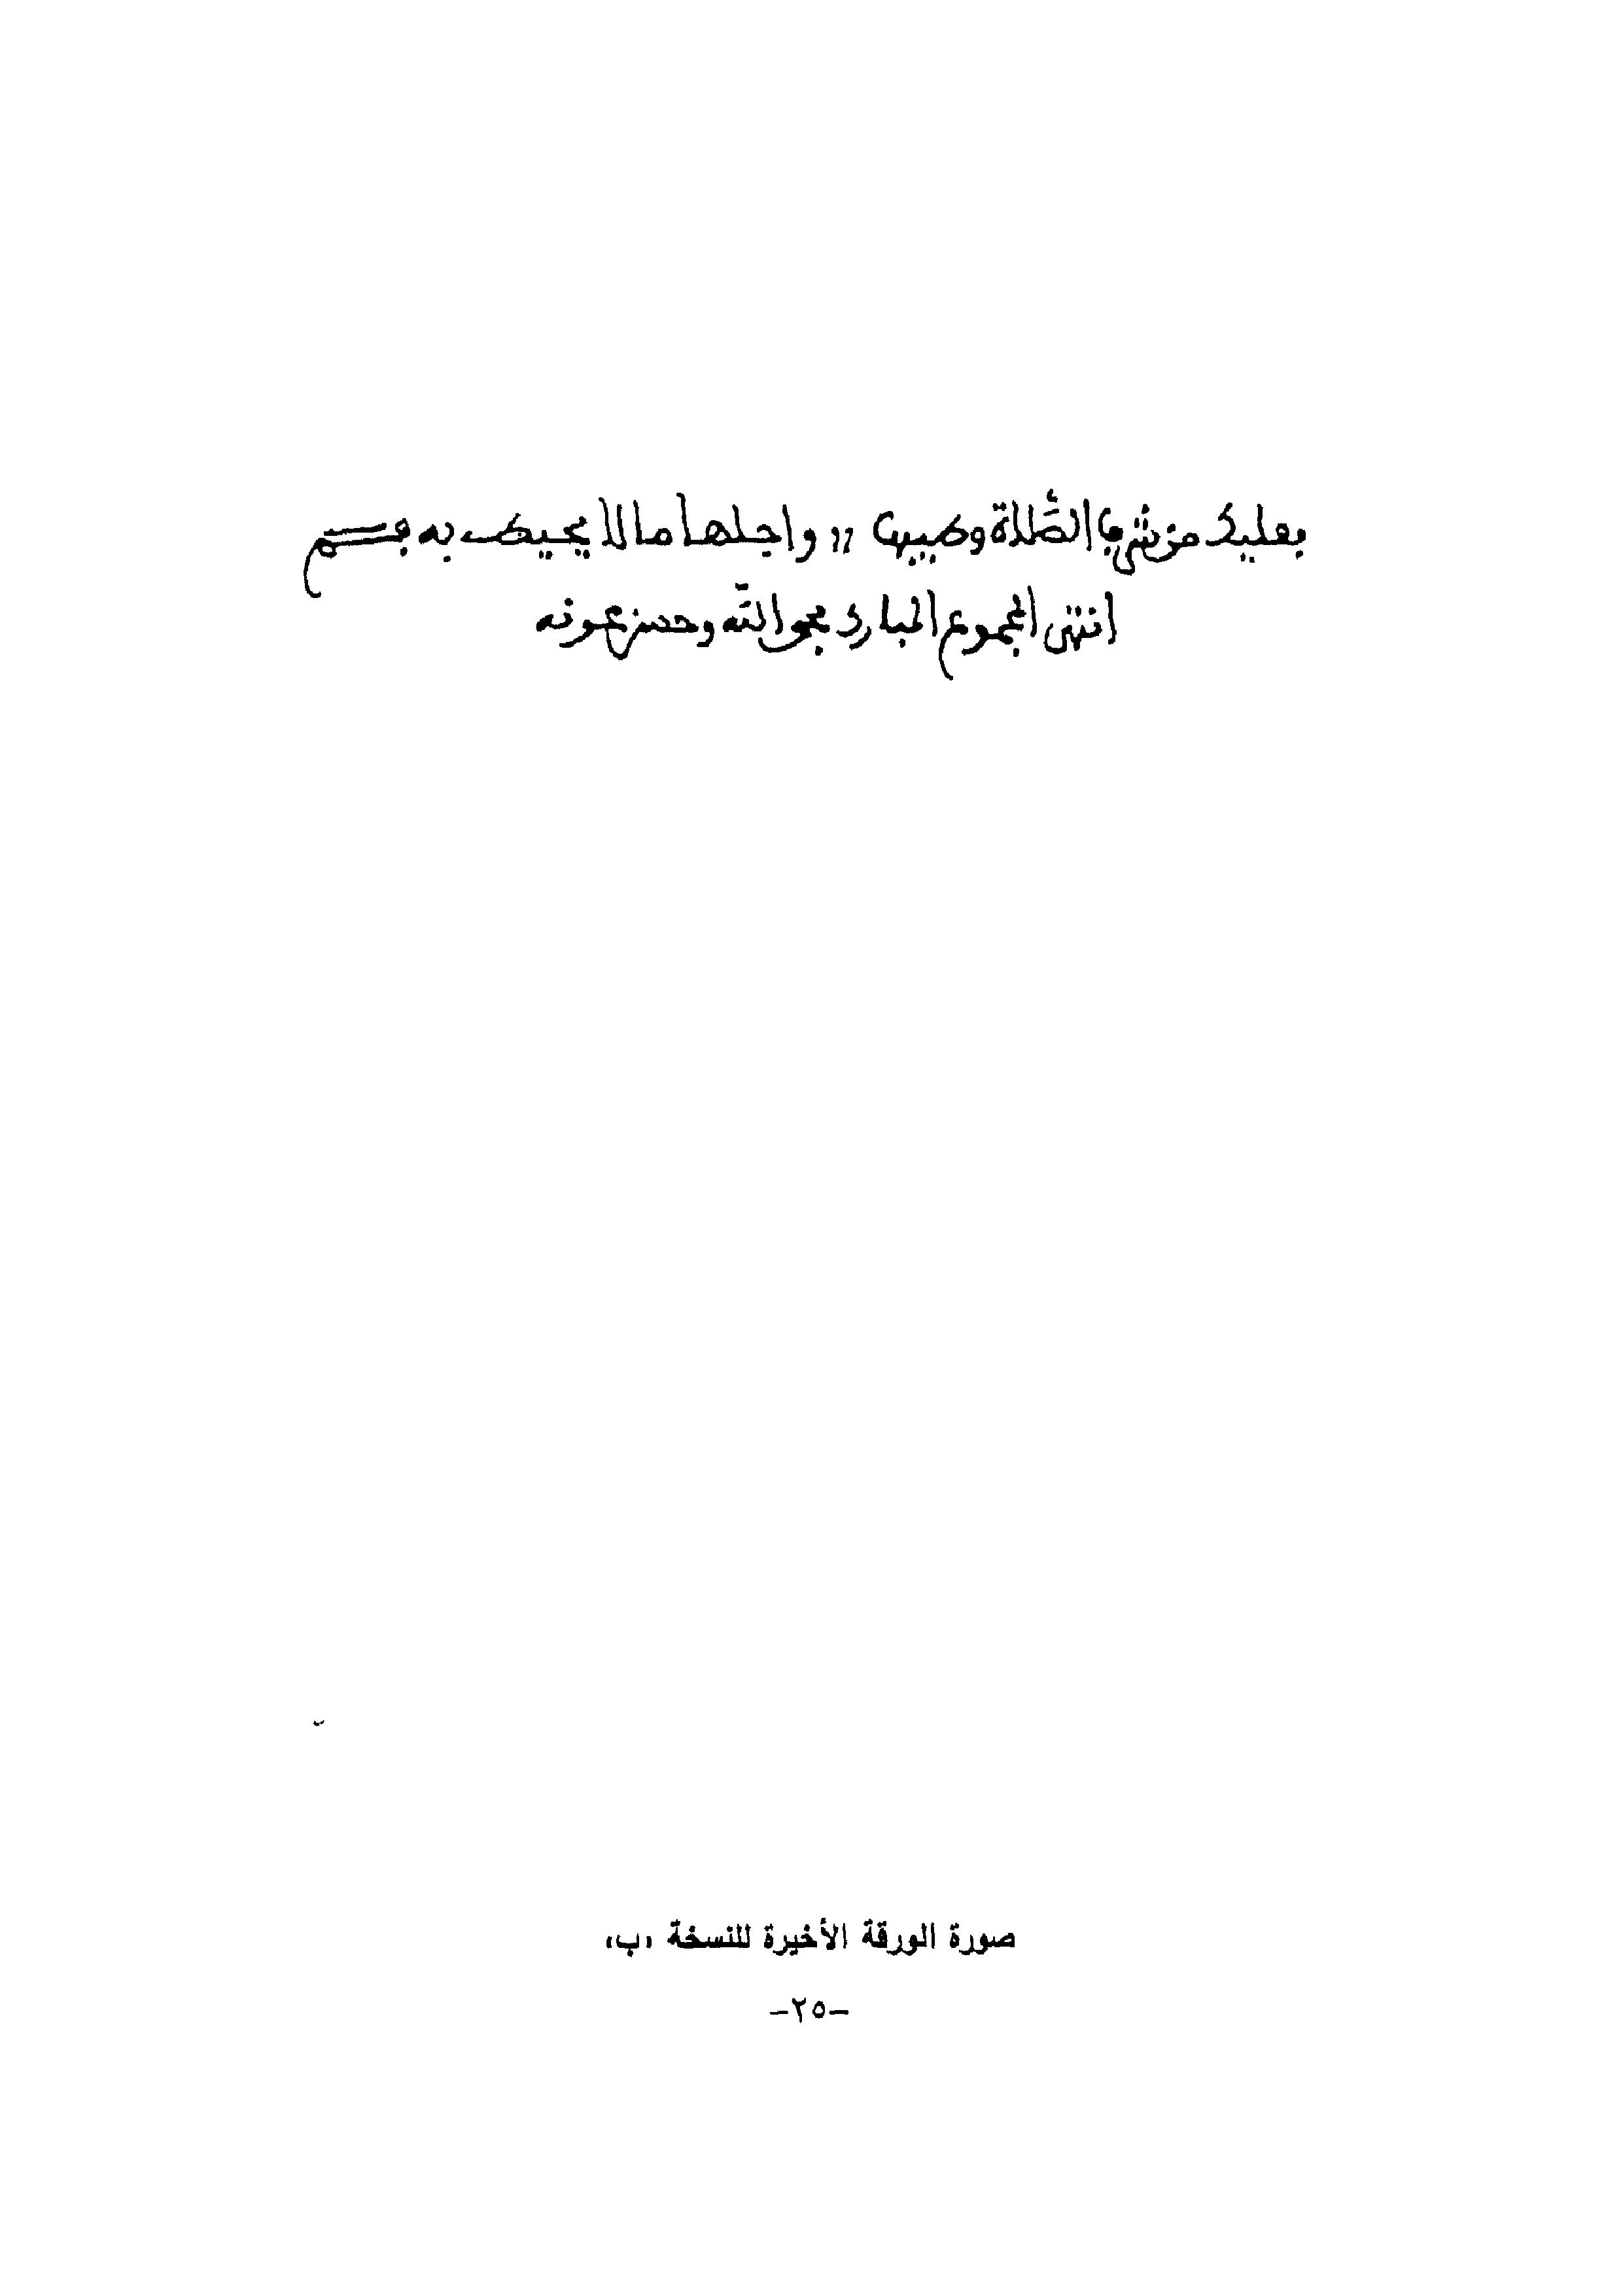 فعليك من شرف الصلاة وطيبها ،، واجلها ما لا يحيط به فم
انتهى المجموع المبارك بحول الله وحسن عونه
صورة الورقة الأخيرة للنسخة «ب»
-٢٥-